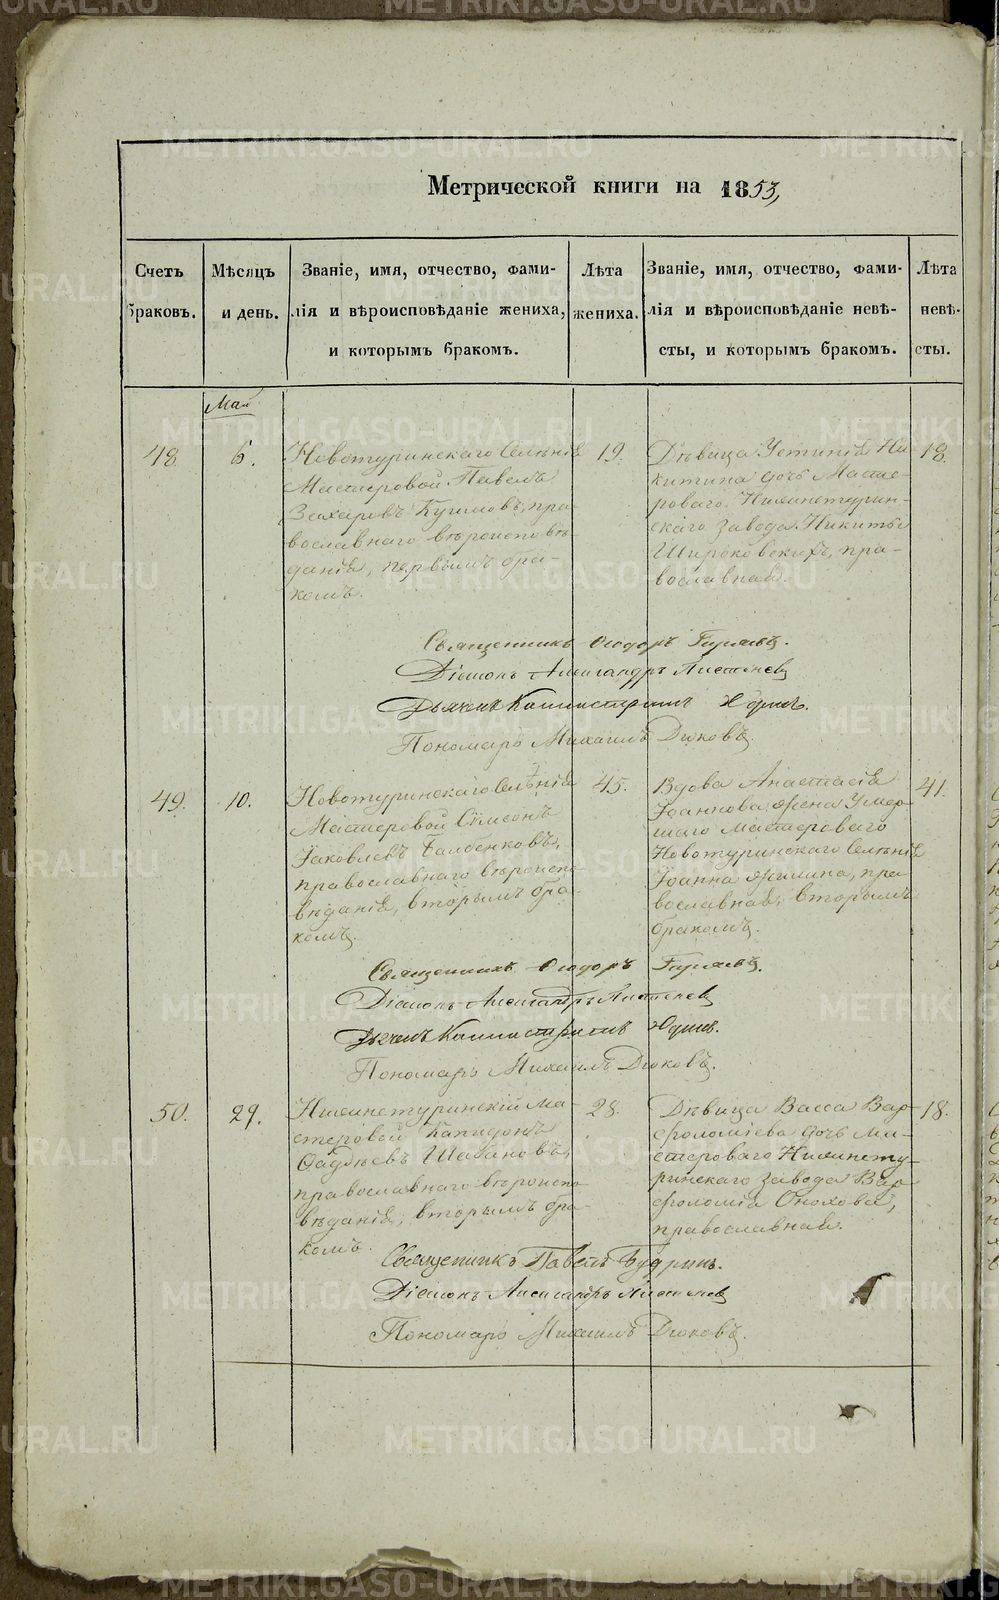 Метрической книги на 1853,
Счетъ браковъ.
Мѣсяцъ и день.
Званіе, имя, отчество, фами-
лія и вѣроисповѣданіе жениха,
и которымъ бракомъ.
Лѣта жениха.
Званіе, имя, отчество, фами-
лія и вѣроисповѣданіе невѣ-
сты, и которымъ бракомъ.
Лѣта невѣ-
сты.
Май
48
6.
Новотуринскаго Селенія
Мастеровой Павелъ
Захаровъ пра-
вославнаго вѣроисповѣ-
данія, первымъ бра-
комъ.
19.
Дѣвица Устинія Ни-
китина дочь Масте-
роваго Нижнетурин-
скаго завода Никиты
Широковскихъ, пра-
вославная.
18.
Священникъ Ѳеодоръ
Діаконъ Александръ
Дьячекъ Каллистратъ
Пономарь Михаилъ Дюковъ.
49.
10.
Новотуринскаго Селѣнія
Мастеровой Сѵмеонъ
Іаковлевъ
православнаго вѣроиспо-
вѣданія, вторымъ бра-
комъ.
45.
Вдова Анастасія
Іоаннова, жена умер-
шаго мастероваго
Новотуринскаго Селѣнія
Іоанна Жилина, пра-
вославная, вторымъ
бракомъ.
41.
Священникъ Ѳеодоръ
Діаконъ Александръ
Дьячекъ Каллистратъ
Пономарь Михаилъ Дюковъ.
50.
29.
Нижнетуринскій ма-
стеровой Капидонъ
Ѳаддѣевъ Шабановъ,
православнаго вѣроиспо-
вѣданія, вторымъ бра-
комъ.
28.
Дѣвица Васса Вар-
ѳоломіева дочь ма-
стероваго Нижнету-
ринскаго завода Вар-
ѳоломія Онохова,
православная.
18.
Священникъ Павелъ Будринъ.
Діаконъ Александръ
Пономарь Михаилъ Дюковъ.
METRIKI.GASO-URAL.RU